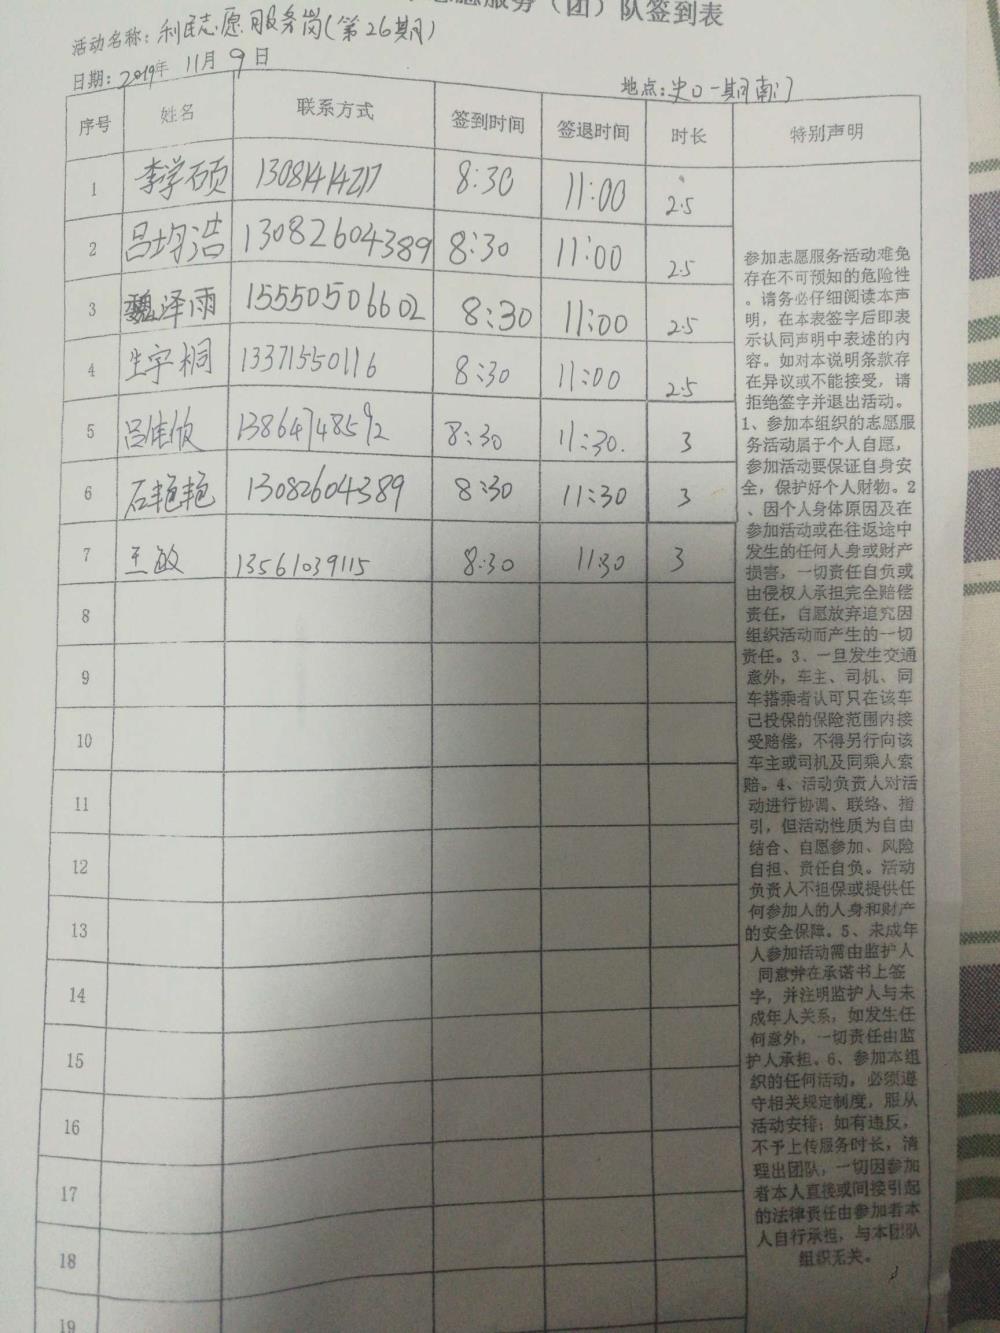 服务（团）队签到表
活动名称：利民志愿服务岗（第26期）
日期：2019年 11月 9日
地点：史口一期南门
序号 姓名 联系方式 签到时间 签退时间 时长 特别声明
1 李学硕 13081414217 8:30 11:00 2.5
2 吕均浩 13082604389 8:30 11:00 2.5
3 魏泽雨 15550506602 8:30 11:00 2.5
4 生宇桐 13371550116 8:30 11:00 2.5
5 吕佳 13864748592 8:30 11:30. 3
6 石艳艳 13082604389 8:30 11:30 3
7 王敏 13561039115 8:30 11:30 3
8
9
10
11
12
13
14
15
16
17
18
19
参加志愿服务活动难免
存在不可预知的危险性
。请务必仔细阅读本声
明，在本表签字后即表
示认同声明中表述的内
容。如对本说明条款存
在异议或不能接受，请
拒绝签字并退出活动。
1、参加本组织的志愿服
务活动属于个人自愿，
参加活动要保证自身安
全，保护好个人财物。2
、因个人身体原因及在
参加活动或在往返途中
发生的任何人身或财产
损害，一切责任自负或
由侵权人承担完全赔偿
责任，自愿放弃追究因
组织活动而产生的一切
责任。3、一旦发生交通
意外，车主、司机、同
车搭乘者认可只在该车
已投保的保险范围内接
受赔偿，不得另行向该
车主或司机及同乘人索
赔。4、活动负责人对活
动进行协调、联络、指
引，但活动性质为自由
结合、自愿参加、风险
自担、责任自负。活动
负责人不担保或提供任
何参加人的人身和财产
的安全保障。5、未成年
人参加活动需由监护人
同意并在承诺书上签
字，并注明监护人与未
成年人关系，如发生任
何意外，一切责任由监
护人承担。6、参加本组
织的任何活动，必须遵
守相关规定制度，服从
活动安排；如有违反，
不予上传服务时长，清
理出团队，一切因参加
者本人直接或间接引起
的法律责任由参加者本
人自行承担，与本团队
组织无关。